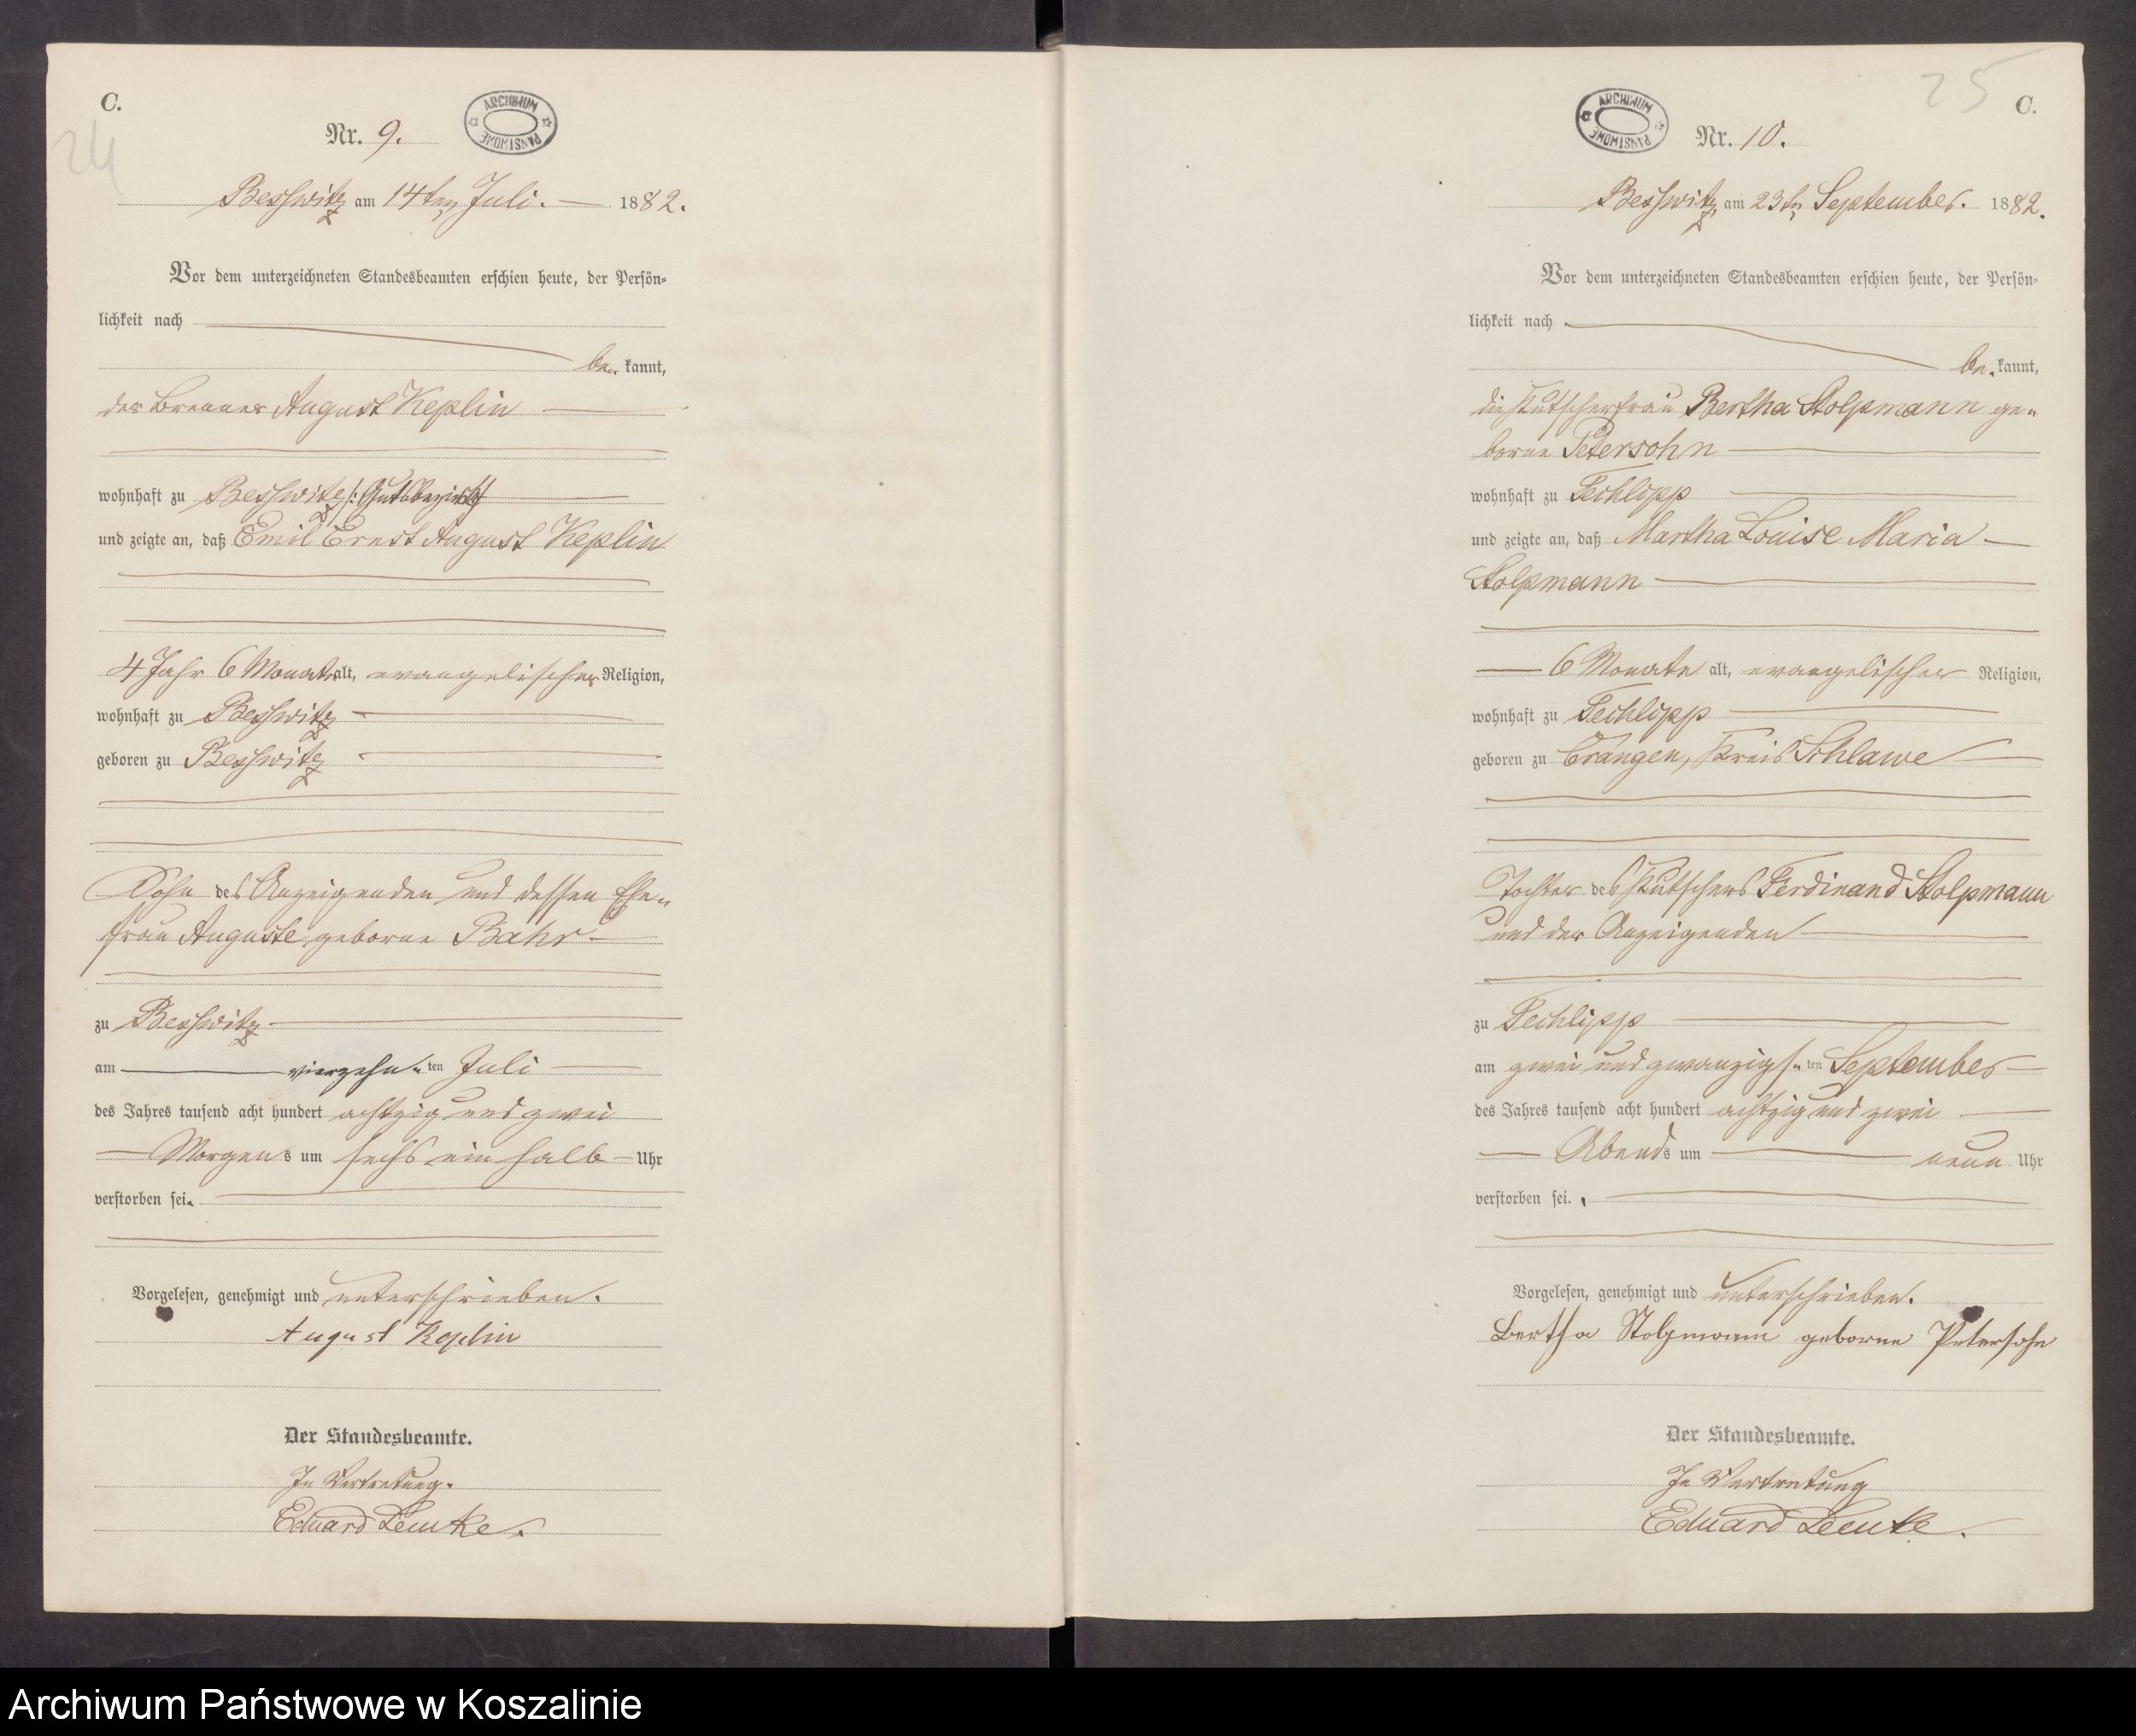 C.
24
Nr. 9.
ARCHIWUM PAŃSTWOWE
Besswitz am 14ten Juli. 1882.
Vor dem unterzeichneten Standesbeamten erschien heute, der Persön-
lichkeit nach
be- kannt,
der Brenner August Keplin
wohnhaft zu Besswitz /: Gutsbezirk :/
und zeigte an, daß Emil Ernst August Keplin
4 Jahr 6 Monate alt, evangelischer Religion,
wohnhaft zu Besswitz
geboren zu Besswitz
Sohn des Anzeigenden und dessen Ehe-
frau Auguste geborne Bahr
zu Besswitz
am vierzehn-ten Juli
des Jahres tausend acht hundert achtzig und zwei
Morgens um sechs ein halb Uhr
verstorben sei.
Vorgelesen, genehmigt und unterschrieben.
August Keplin
Der Standesbeamte.
In Vertretung.
Eduard Lemke.
25
C.
ARCHIWUM PAŃSTWOWE
Nr. 10.
Besswitz, am 23ten September. 1882.
Vor dem unterzeichneten Standesbeamten erschien heute, der Persön-
lichkeit nach
be- kannt,
die Kutscherfrau Bertha Stolpmann ge-
borne Petersohn
wohnhaft zu Techlipp
und zeigte an, daß Martha Louise Maria
Stolpmann
6 Monate alt, evangelischer Religion,
wohnhaft zu Techlipp
geboren zu Crangen, Kreis Schlawe
Tochter des Kutschers Ferdinand Stolpmann
und der Anzeigenden
zu Techlipp
am zwei und zwanzigs-ten September
des Jahres tausend acht hundert achtzig und zwei
Abends um neun Uhr
verstorben sei.
Vorgelesen, genehmigt und unterschrieben.
Bertha Stolpmann geborne Petersohn
Der Standesbeamte.
In Vertretung
Eduard Lemke.
Archiwum Państwowe w Koszalinie